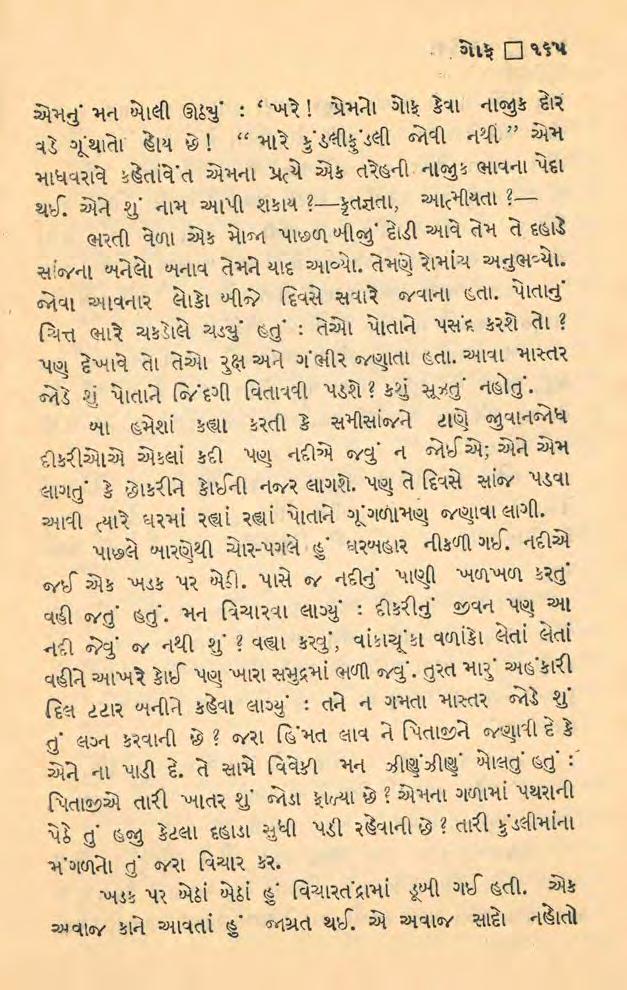 ગોફ □ ૧૬૫
એમનું મન બોલી ઊઠ્યું : ‘ ખરે ! પ્રેમનો ગોફ કેવા નાજુક દોર
વડે ગૂંથાતો હોય છે ! “ મારે કુંડલીફુંડલી જોવી નથી ” એમ
માધવરાવે કહેતાંવેંત એમના પ્રત્યે એક તરેહની નાજુક ભાવના પેદા
થઈ. એને શું નામ આપી શકાય ?—કૃતજ્ઞતા, આત્મીયતા ?—
ભરતી વેળા એક મોજા પાછળ બીજું દોડી આવે તેમ તે દહાડે
સાંજના બનેલો બનાવ તેમને યાદ આવ્યો. તેમણે રોમાંચ અનુભવ્યો.
જોવા આવનાર લોકો બીજે દિવસે સવારે જવાના હતા. પોતાનું
ચિત્ત ભારે ચકડોલે ચડ્યું હતું : તેઓ પોતાને પસંદ કરશે તો ?
પણ દેખાવે તો તેઓ રુક્ષ અને ગંભીર જણાતા હતા. આવા માસ્તર
જોડે શું પોતાને જિંદગી વિતાવવી પડશે ? કશું સૂઝતું નહોતું.
બા હમેશાં કહ્યા કરતી કે સમીસાંજને ટાણે જુવાનજોધ
દીકરીઓએ એકલાં કદી પણ નદીએ જવું ન જોઈએ; એને એમ
લાગતું કે છોકરીને કોઈની નજર લાગશે. પણ તે દિવસે સાંજ પડવા
આવી ત્યારે ઘરમાં રહ્યાં રહ્યાં પોતાને ગૂંગળામણ જણાવા લાગી.
પાછલે બારણેથી ચોર-પગલે હું ઘરબહાર નીકળી ગઈ. નદીએ
જઈ એક ખડક પર બેઠી. પાસે જ નદીનું પાણી ખળખળ કરતું
વહી જતું હતું. મન વિચારવા લાગ્યું : દીકરીનું જીવન પણ આ
નદી જેવું જ નથી શું ? વહ્યા કરવું, વાંકાચૂંકા વળાંકો લેતાં લેતાં
વહીને આખરે કોઈ પણ ખારા સમુદ્રમાં ભળી જવું. તુરત મારું અહંકારી
દિલ ટટાર બનીને કહેવા લાગ્યું : તને ન ગમતા માસ્તર જોડે શું
તું લગ્ન કરવાની છે ? જરા હિંમત લાવ ને પિતાજીને જણાવી દે કે
એને ના પાડી દે. તે સામે વિવેકી મન ઝીણુંઝીણું બોલતું હતું :
પિતાજીએ તારી ખાતર શું જોડા ફાળ્યા છે ? એમના ગળામાં પથરાની
પેઠે તું હજુ કેટલા દહાડા સુધી પડી રહેવાની છે ? તારી કુંડલીમાંના
મંગળનો તું જરા વિચાર કર.
ખડક પર બેઠાં બેઠાં હું વિચારતંદ્રામાં ડૂબી ગઈ હતી. એક
અવાજ કાને આવતાં હું જાગ્રત થઈ. એ અવાજ સાદો નહોતો